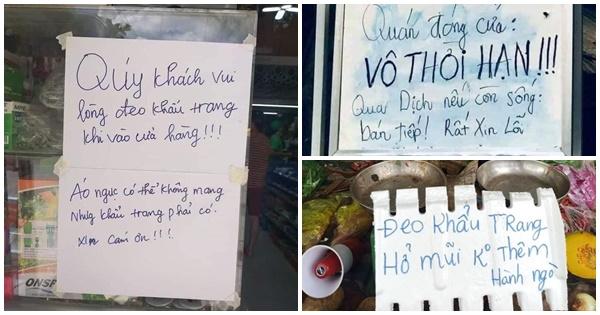 Qúy khách vui
lòng đeo khẩu trang
khi vào cửa hàng!!!
Áo ngực có thể không mang
Nhưg khẩu trang phải có.
Xin cám ơn!!!
ONSP
Quán đóng cửa:
VÔ THỜI HẠN!!!
Qua Dịch nếu còn sống:
bán tiếp! Rất Xin Lỗi
ĐEO KHẨU TRANG
HỞ MŨI Kº THÊM
HÀNH NGÒ